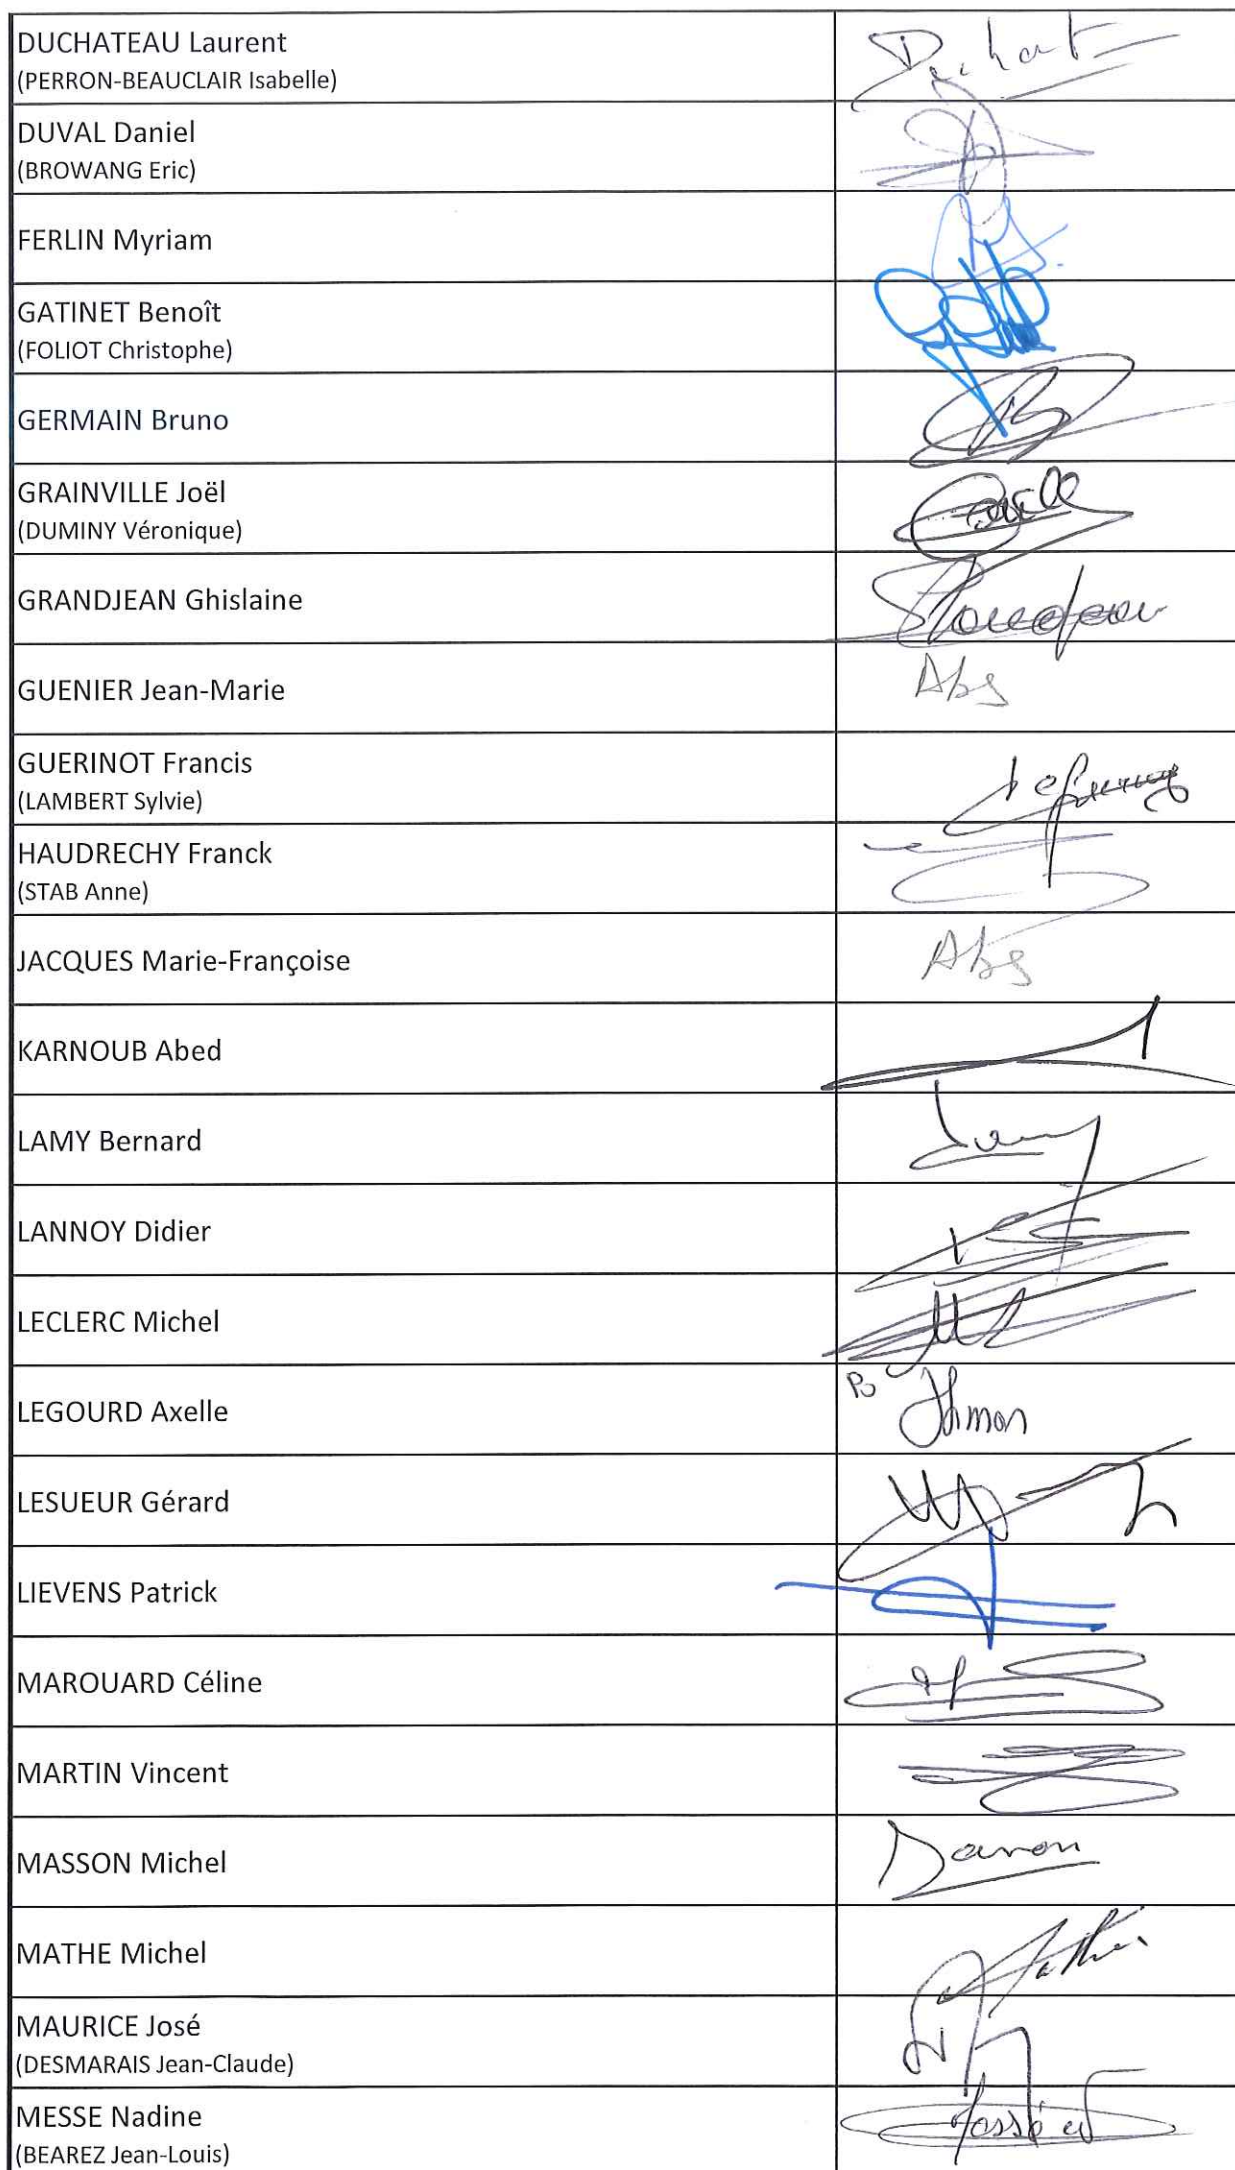 DUCHATEAU Laurent
(PERRON-BEAUCLAIR Isabelle)
DUVAL Daniel
(BROWANG Eric)
FERLIN Myriam
GATINET Benoît
(FOLIOT Christophe)
GERMAIN Bruno
GRAINVILLE Joël
(DUMINY Véronique)
GRANDJEAN Ghislaine
GUENIER Jean-Marie Abs
GUERINOT Francis
(LAMBERT Sylvie)
HAUDRECHY Franck
(STAB Anne)
JACQUES Marie-Françoise Abs
KARNOUB Abed
LAMY Bernard
LANNOY Didier
LECLERC Michel
LEGOURD Axelle
LESUEUR Gérard
LIEVENS Patrick
MAROUARD Céline
MARTIN Vincent
MASSON Michel
MATHE Michel
MAURICE José
(DESMARAIS Jean-Claude)
MESSE Nadine
(BEAREZ Jean-Louis)